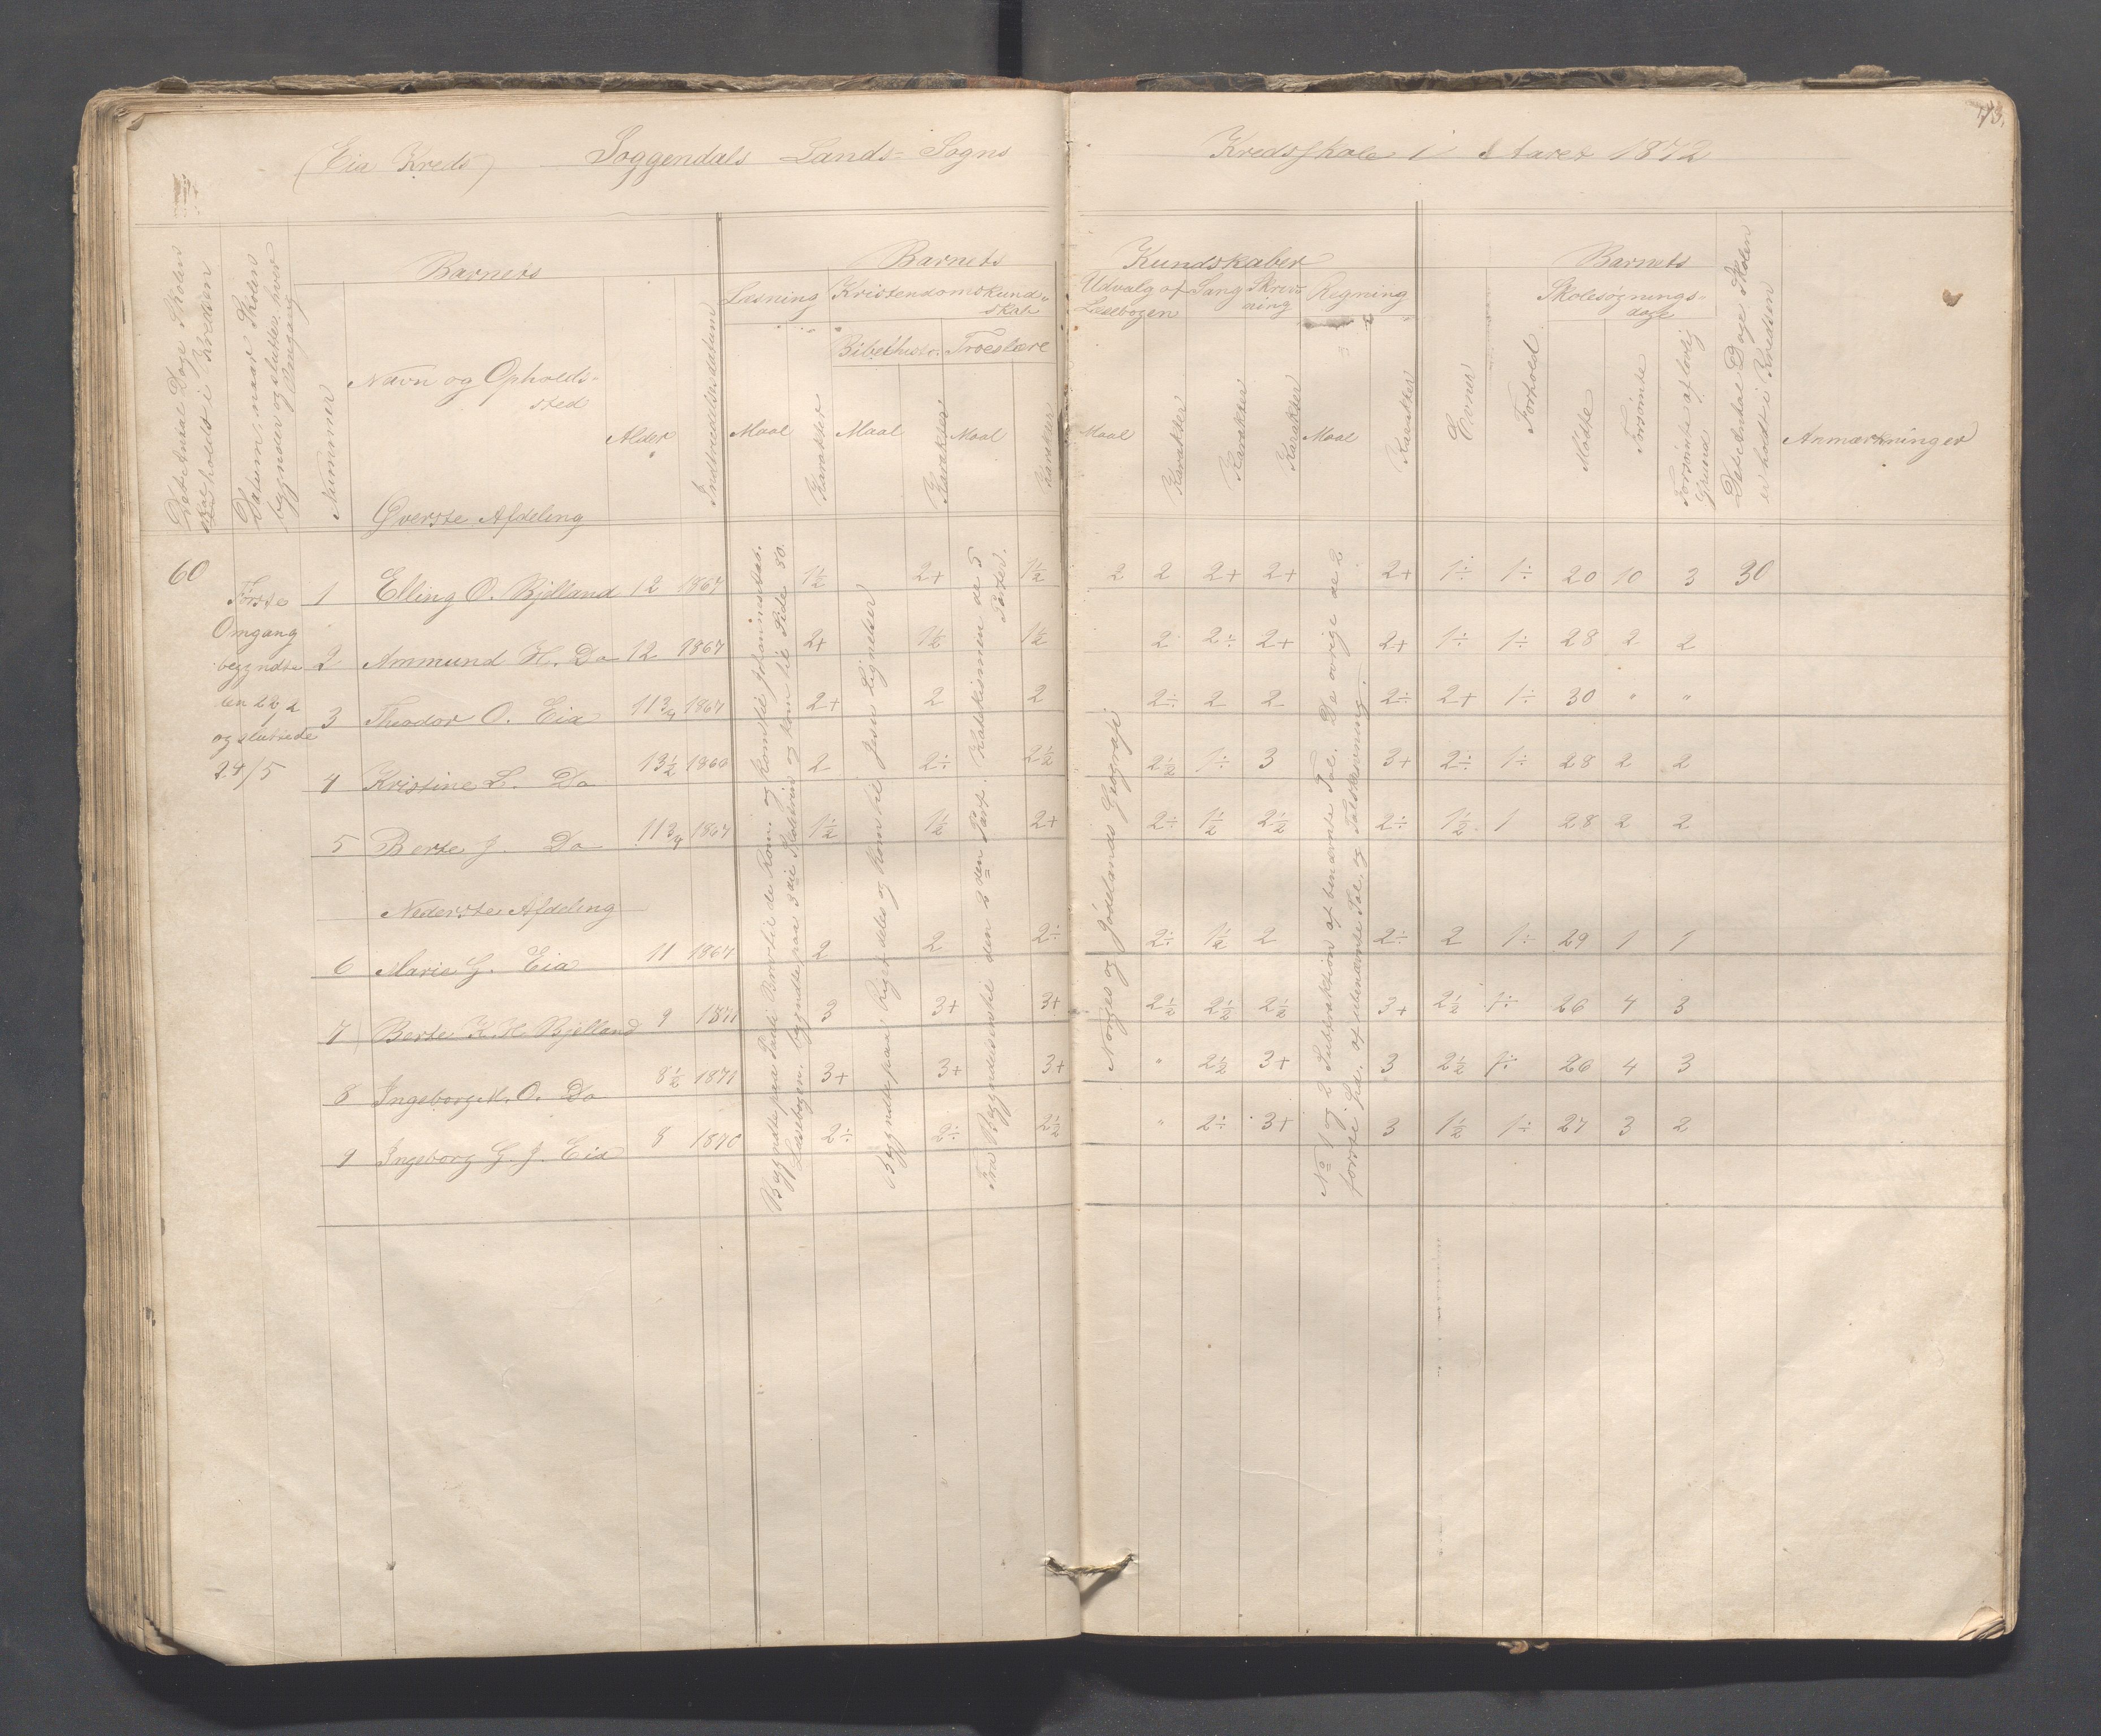 73.
(Eia Kreds) Soggendals Lands= Sogns Kredsskole i Aaret 1872
Det Antal Dage Skolen skal holdes i Kredsen
Datum, naar Skolen begynder og slutter hver Omgang
Barnets
Nummer
Navn og Opholds-
sted
Alder
Indtrædelsesdatum
Barnets Kundskaber
Læsning
Kristendomskund=
skab
Bibelhist. Troeslære
Udvalg af Læsebogen
Sang
Skriv=
ning
Regning
Maal Karakter Maal Karakter Maal Karakter Maal Karakter Karakter Karakter Maal Karakter
Evner
Forhold
Barnets
Skolesøgnings=
dage
Mødte
Forsømte
Forsømte af lovlig Grund
Det Antal Dage Skolen er holdt i Kredsen
Anmærkninger
Øverste Afdeling
60
Første
Omgang
begyndte
den 22/1
og sluttede
24/5
1 Elling O. Bjelland 12 1867 1½ 2+ 1½ 2 2 2+ 2+ 2+ 1÷ 1÷ 20 10 3 30
2 Ammund H. Do 12 1867 2+ 1½ 1½ 2 2÷ 2+ 2+ 1÷ 1÷ 28 2 2
3 Theodor O. Eia 11¾ 1867 2+ 2 2 2÷ 2 2 2÷ 2+ 1÷ 30 " "
4 Kristine L. Do 13½ 1866 2 2÷ 2½ 2½ 1÷ 3 3+ 2÷ 1÷ 28 2 2
5 Berte J. Do 11¾ 1867 1½ 1½ 2+ 2÷ 1½ 2½ 2÷ 1½ 1 28 2 2
Nederste Afdeling
6 Marie G. Eia 11 1867 2 2 2÷ 2÷ 1½ 2 2÷ 2 1÷ 29 1 1
7 Berte K. H. Bjelland 9 1871 3 3+ 3+ 2½ 2½ 2½ 3+ 2½ 1÷ 26 4 3
8 Ingeborg M. O. Do 8½ 1871 3+ 3+ 3+ " 2½ 3+ 3 2½ 1÷ 26 4 3
9 Ingeborg G. J. Eia 8 1870 2÷ 2÷ 2½ " 2÷ 3+ 3 1½ 1÷ 27 3 2
Begyndte paa Pauli Brev til de Rom. og kom til Johannes
Læsebogen, begyndte paa 3die og kom til Side 80.
Begyndte paa: Riget deles og kom til Jesu Lignelser
Fra Begyndelsen til den 2den Part. Katekismen de 5
Parter.
Norges og Jødelands Geografi
No 1 og 2 Subtraktion af benævnte Tal. De øvrige de 2
første Sp. af ubenævnte Tal, og Talskrivning.